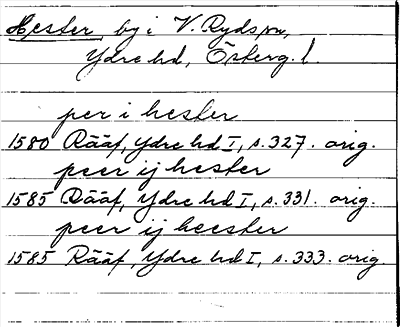 Hester, by i V. Ryds sn,
Ydre hd, Österg. l.
per i hester
1580 Rääf, Ydre hd I, s. 327. orig.
peer ij hester
1585 Rääf, Ydre hd I, s. 331. orig.
peer ij heester
1585 Rääf, Ydre hd I, s. 333. orig.